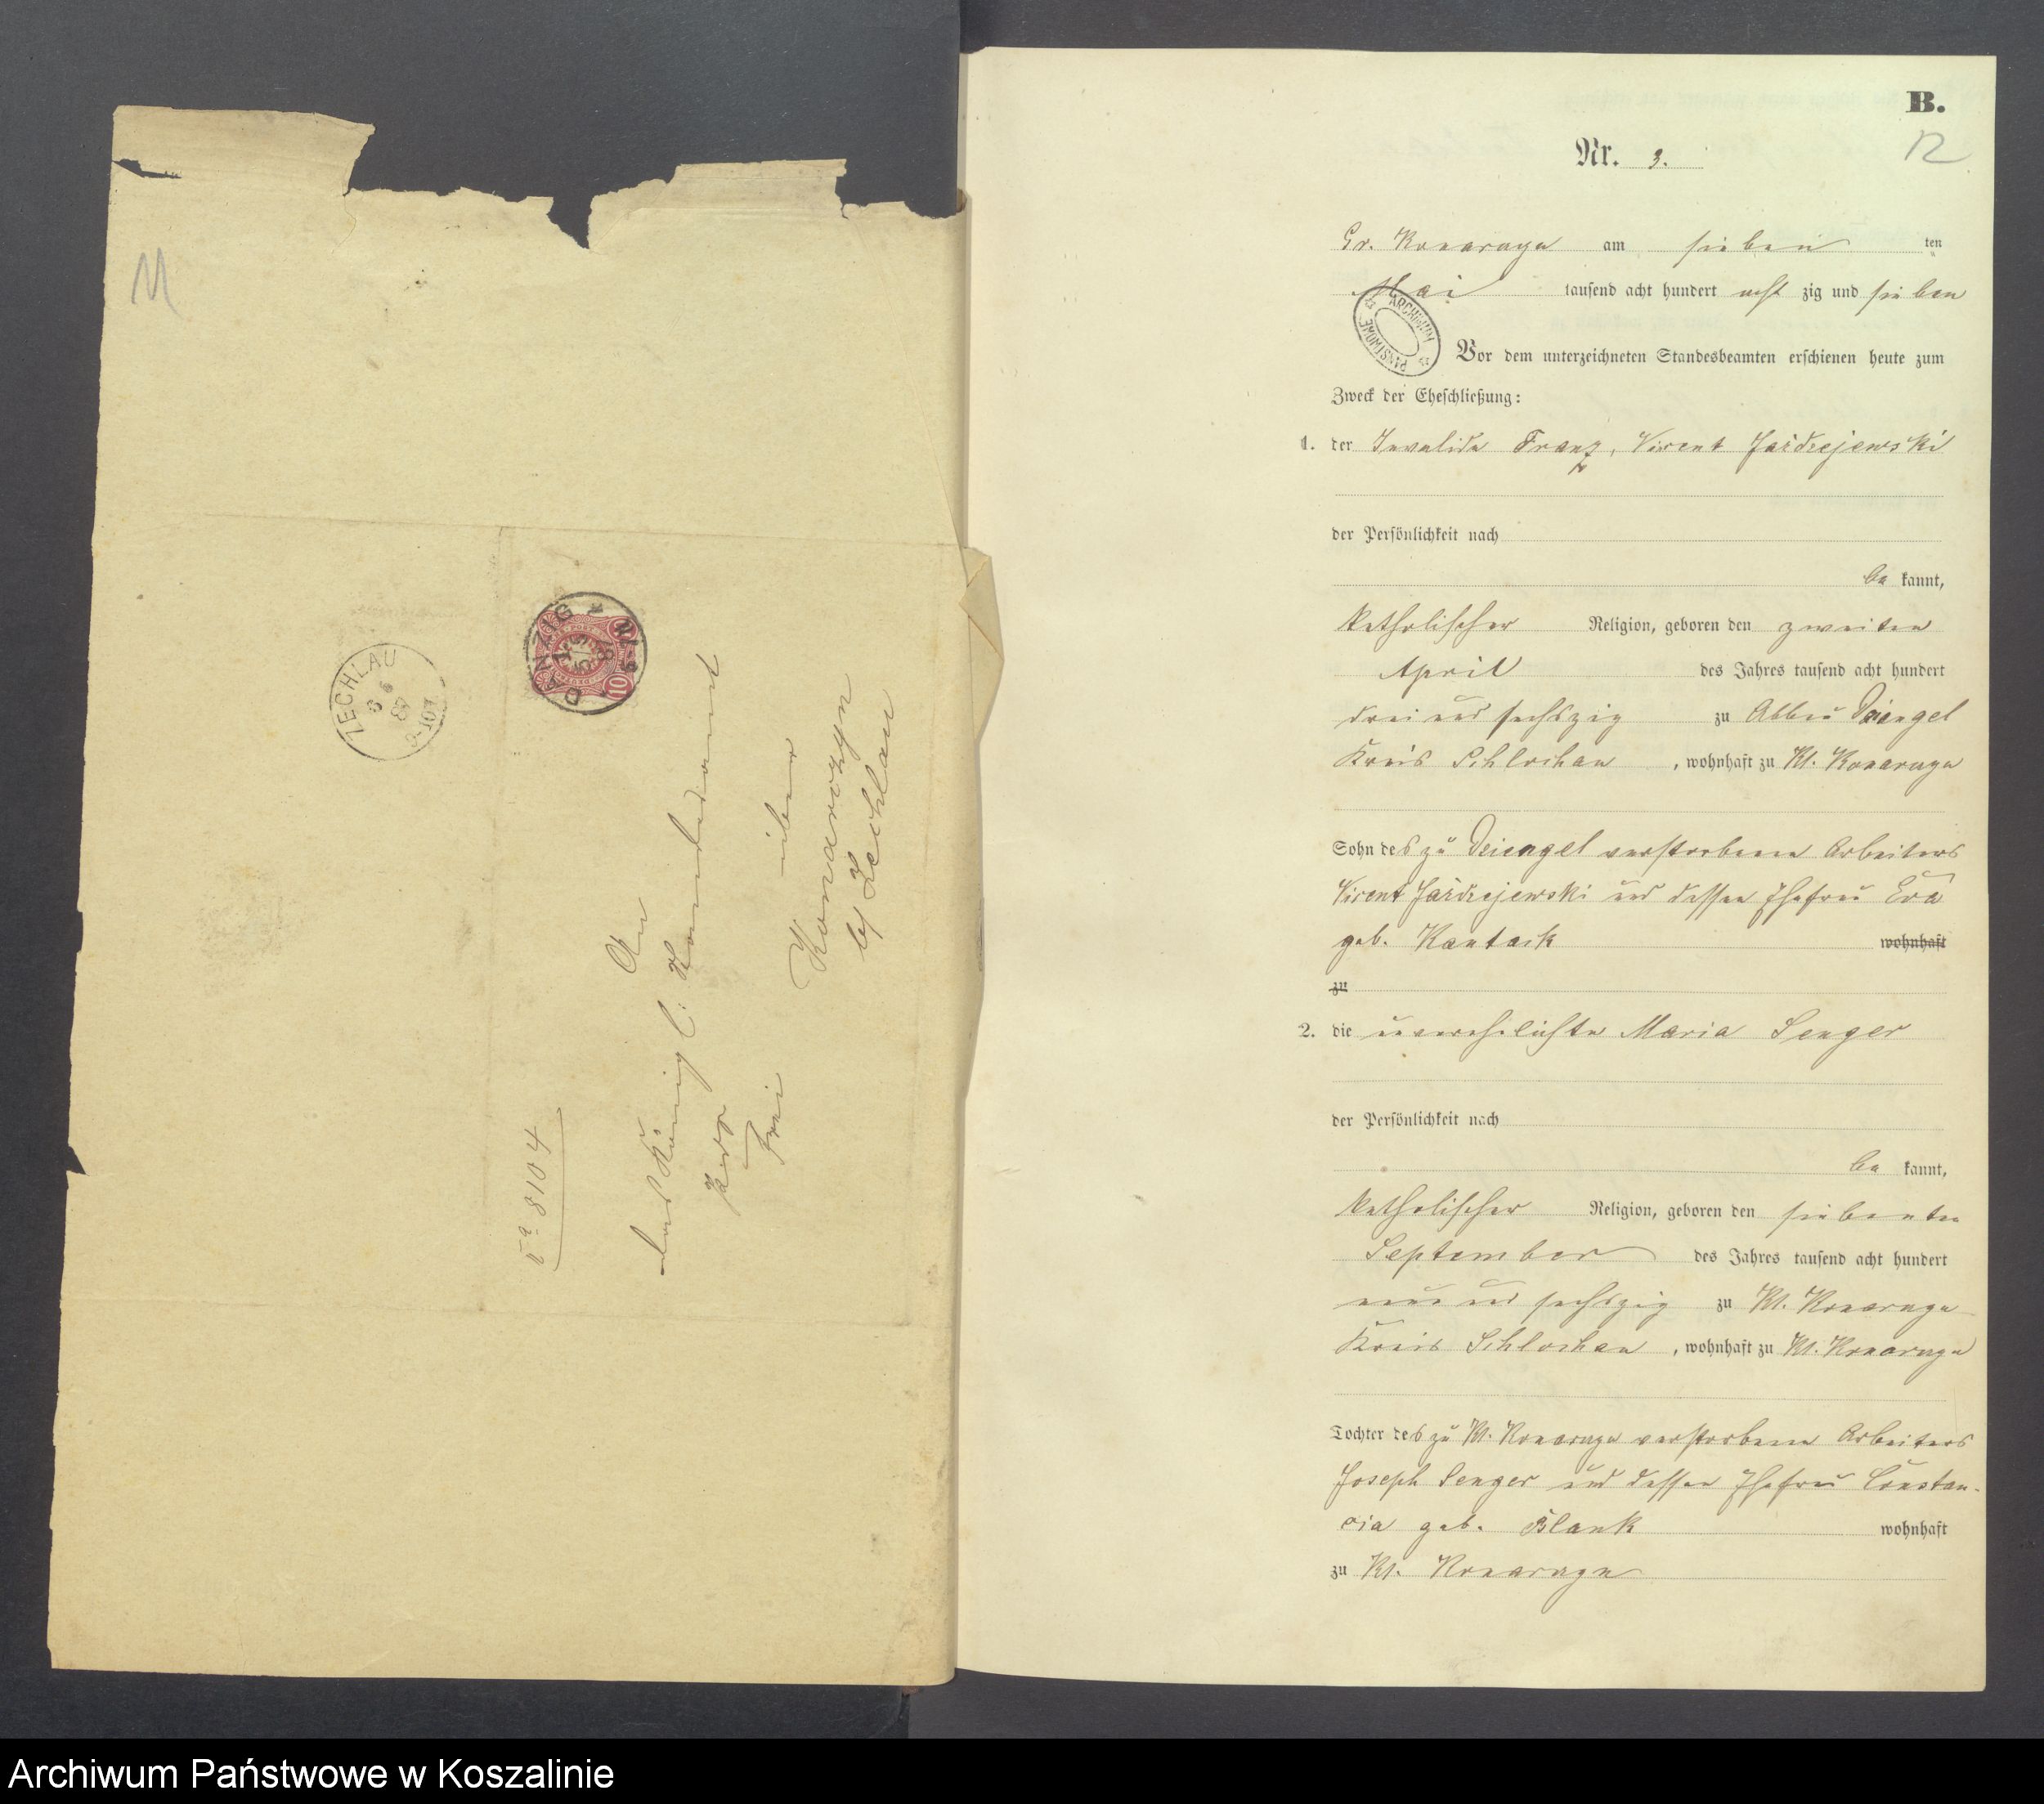 11
ZECHLAU
DANZIG
10
Va 8104
An
das Königl: Kommando
Herr
Frei
über
Konarczyn
b/ Zechlau
B.
12
Nr. 3.
Gr. Konarczyn am sieben ten
Mai tausend acht hundert acht zig und sieben
ARCHIWUM PAŃSTWOWE
Vor dem unterzeichneten Standesbeamten erschienen heute zum
Zweck der Eheschließung:
1. der Invalide Franz, Vincent Jazdrejewski
der Persönlichkeit nach
be kannt,
katholischer Religion, geboren den zweiten
April des Jahres tausend acht hundert
drei und sechszig zu Abbau
Kreis Schlochau, wohnhaft zu Kl. Konarczyn
Sohn des zu verstorbenen Arbeiters
Vincent Jazdrejewski und dessen Ehefrau Eva
geb. Kantack wohnhaft
zu
2. die unverehelichte Maria Senger
der Persönlichkeit nach
be kannt,
katholischer Religion, geboren den siebenten
September des Jahres tausend acht hundert
neun und sechszig zu Kl. Konarczyn
Kreis Schlochau, wohnhaft zu Kl. Konarczyn
Tochter des zu Kl. Konarczyn verstorbenen Arbeiters
Joseph Senger und dessen Ehefrau Constan-
cia geb. Blank wohnhaft
zu Kl. Konarczyn
Archiwum Państwowe w Koszalinie